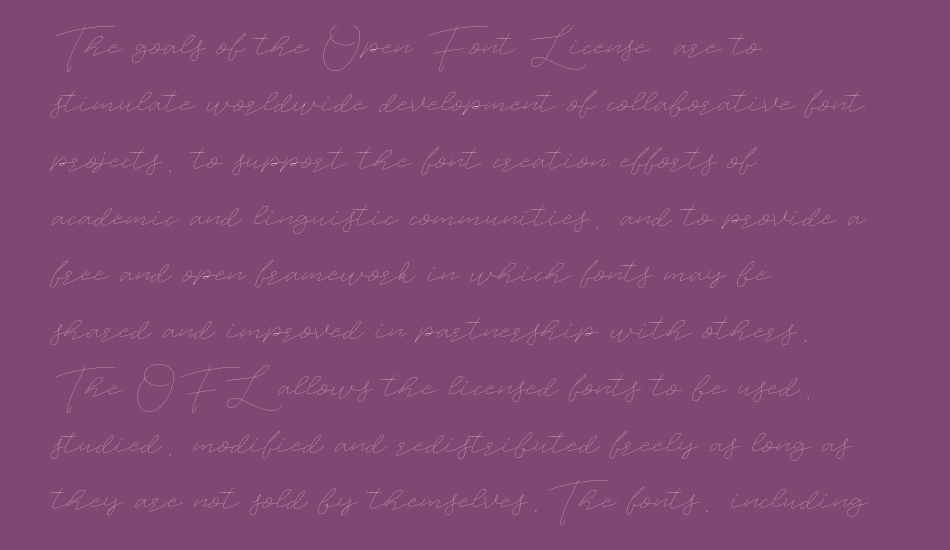 The goals of the Open Font License are to
stimulate worldwide development of collaborative font
projects, to support the font creation efforts of
academic and linguistic communities, and to provide a
free and open framework in which fonts may be
shared and improved in partnership with others.
The OFL allows the licensed fonts to be used,
studied, modified and redistributed freely as long as
they are not sold by themselves. The fonts, including